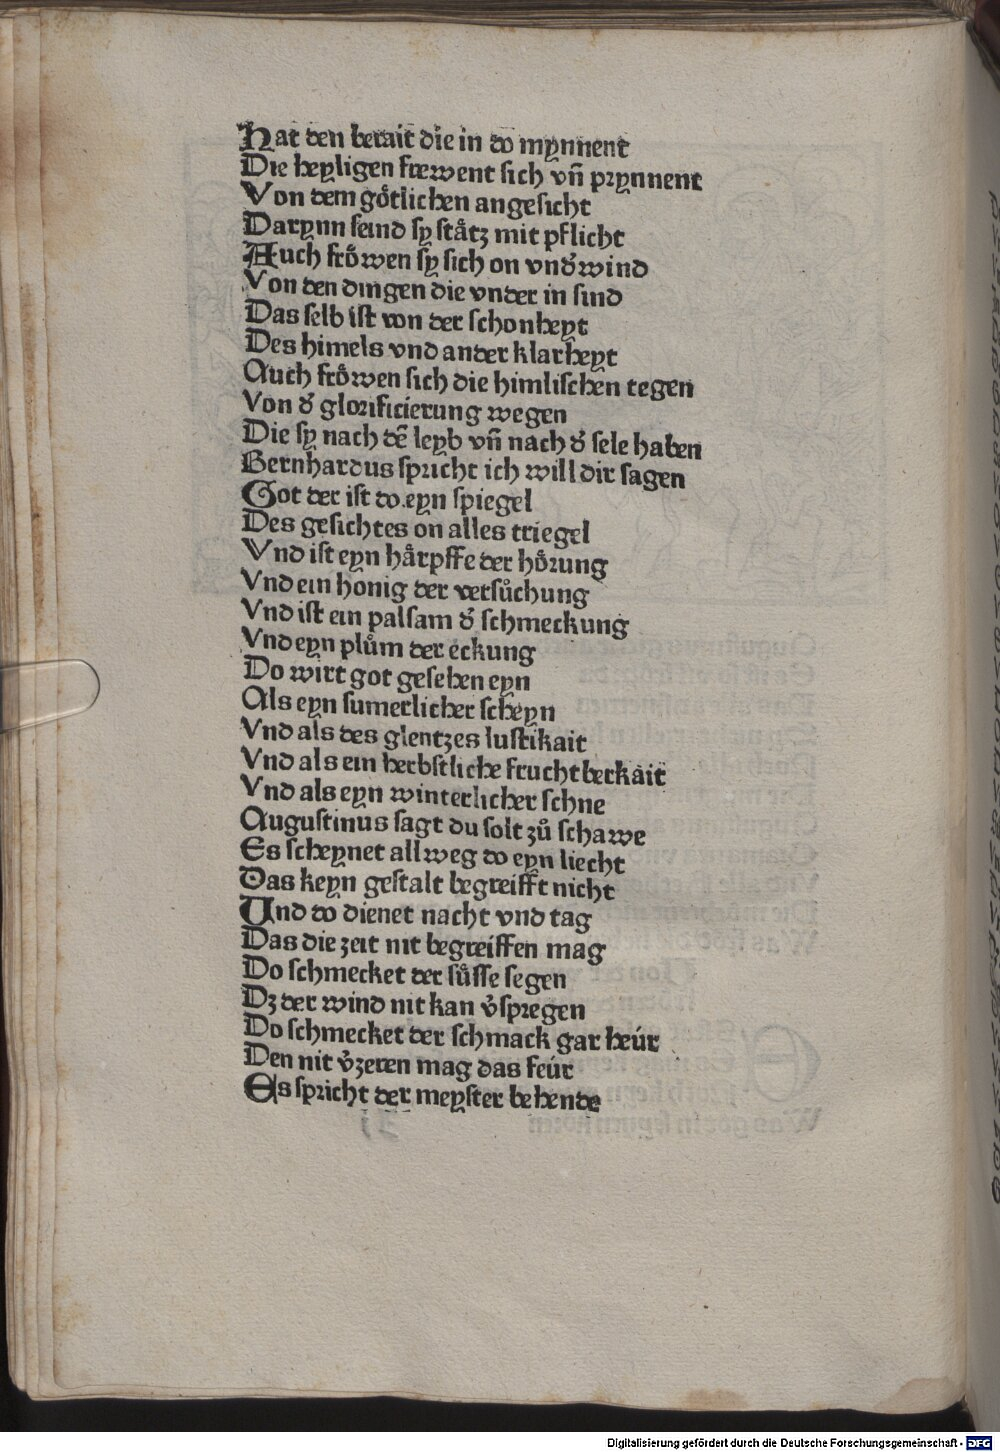 Hat den berait die in do mynnent
Die heyligen frewent sich vñ prynnent
Von dem goͤtlichen angesicht
Darynn seind sy staͤtz mit pflicht
Auch froͤwen sy sich on vnđwind
Von den dingen die vnder in sind
Das selb ist von der schonheyt
Des himels vnd ander klarheyt
Auch froͤwen sich die himlischen tegen
Von đ glorificierung wegen
Die sy nach dē leyb vñ nach đ sele haben
Bernhardus spricht ich will dir sagen
Got der ist do eyn spiegel
Des gesichtes on alles triegel
Vnd ist eyn haͤrpffe der hoͤrung
Vnd ein honig der versuͦchung
Vnd ist ein palsam đ schmeckung
Vnd eyn pluͦm der eckung
Do wirt got gesehen eyn
Als eyn sumerlicher scheyn
Vnd als des glentzes lustikait
Vnd als ein herbstliche fruchtberkait
Vnd als eyn winterlicher schne
Augustinus sagt du solt zuͦ schawe
Es scheynet allweg do eyn liecht
Das keyn gestalt begreifft nicht
Und do dienet nacht vnd tag
Das die zeit nit begreiffen mag
Do schmecket der suͤsse segen
Dz der wind nit kan v̉spregen
Do schmecket der schmack gar heúr
Den nit v̉zeren mag das feúr
Es spricht der meyster behende
Digitalisierung gefördert durch die Deutsche Forschungsgemeinschaft - DFG